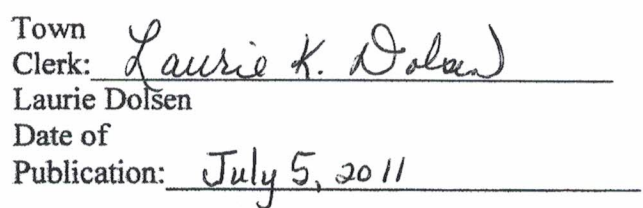 Town
Clerk: Laurie K. Dolsen
Laurie Dolsen
Date of
Publication: July 5, 2011